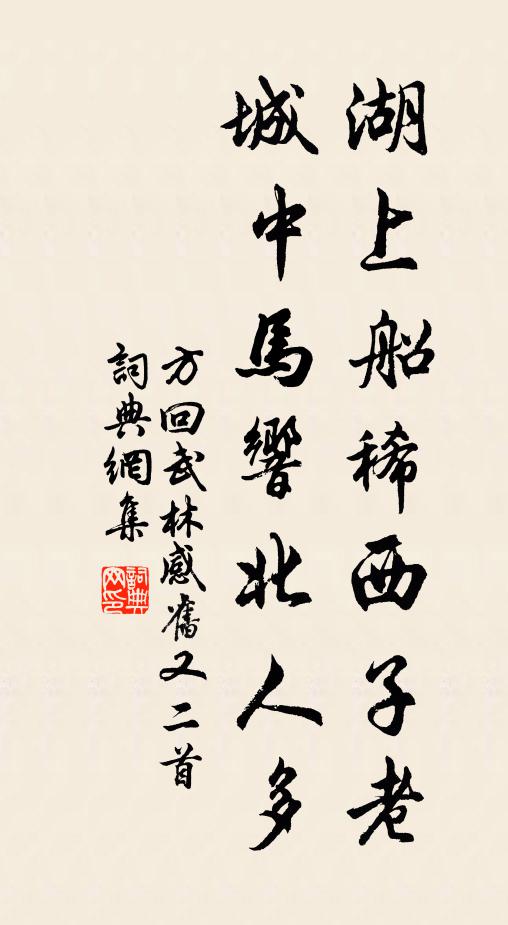 湖上船稀西子老
城中馬響北人多
方回武林感舊又二首
詞典網集
詞典網印